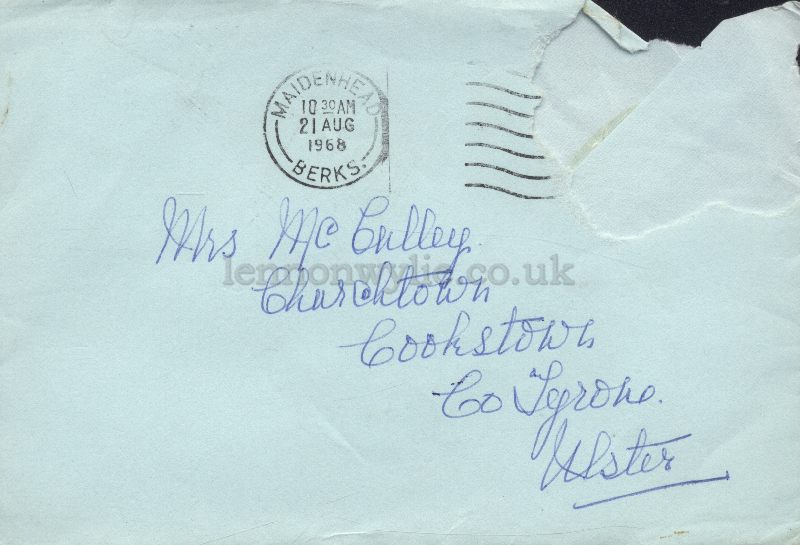 MAIDENHEAD
10 30 AM
21 AUG
1968
BERKS.
Mrs McCulley
lennonwylie.co.uk
Churchtown
Cookstown
Co Tyrone.
Ulster